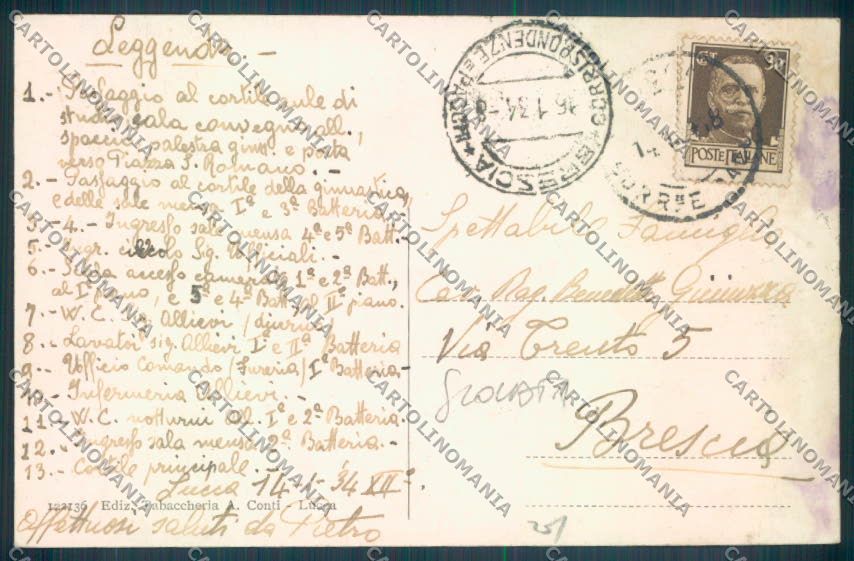 Leggenda -
1.- Passaggio al cortile aule di
studio, sala convegno all.,
spaccio, palestra ginn. e porta
verso Piazza S. Romano. -
2.- Passaggio al cortile della ginnastica,
e delle sale mensa Iª e 3ª Batteria
3 - 4.- Ingresso sale mensa 4ª e 5ª Batt.
5.- Ingr. circolo Sig. Ufficiali. -
6.- Scala accesso camerate 1ª e 2ª Batt.,
al I° piano, e 5ª e 4ª Batt. al II° piano.
7.- W. C. Allievi (diurni)
8.- Lavatoi sig. Allievi Iª e IIª Batteria
9.- Ufficio Comando (Fureria) Iª Batteria-
10.- Infermeria Allievi. -
11.- W. C. notturni all. Iª e 2ª Batteria.
12.- Ingresso sala mensa 2ª Batteria. -
13.- Cortile principale.
Lucca 14-1-34 XIIº-
122136 Ediz. Tabaccheria A. Conti - Lucca
Affettuosi saluti da Pietro
BRESCIA
CORRISPONDENZE
16.1.34
CT CT
POSTE ITALIANE
Spettabile Famiglia
Cav. Rag. Benedetto
Via Trento 5
Brescia
CARTOLINOMANIA